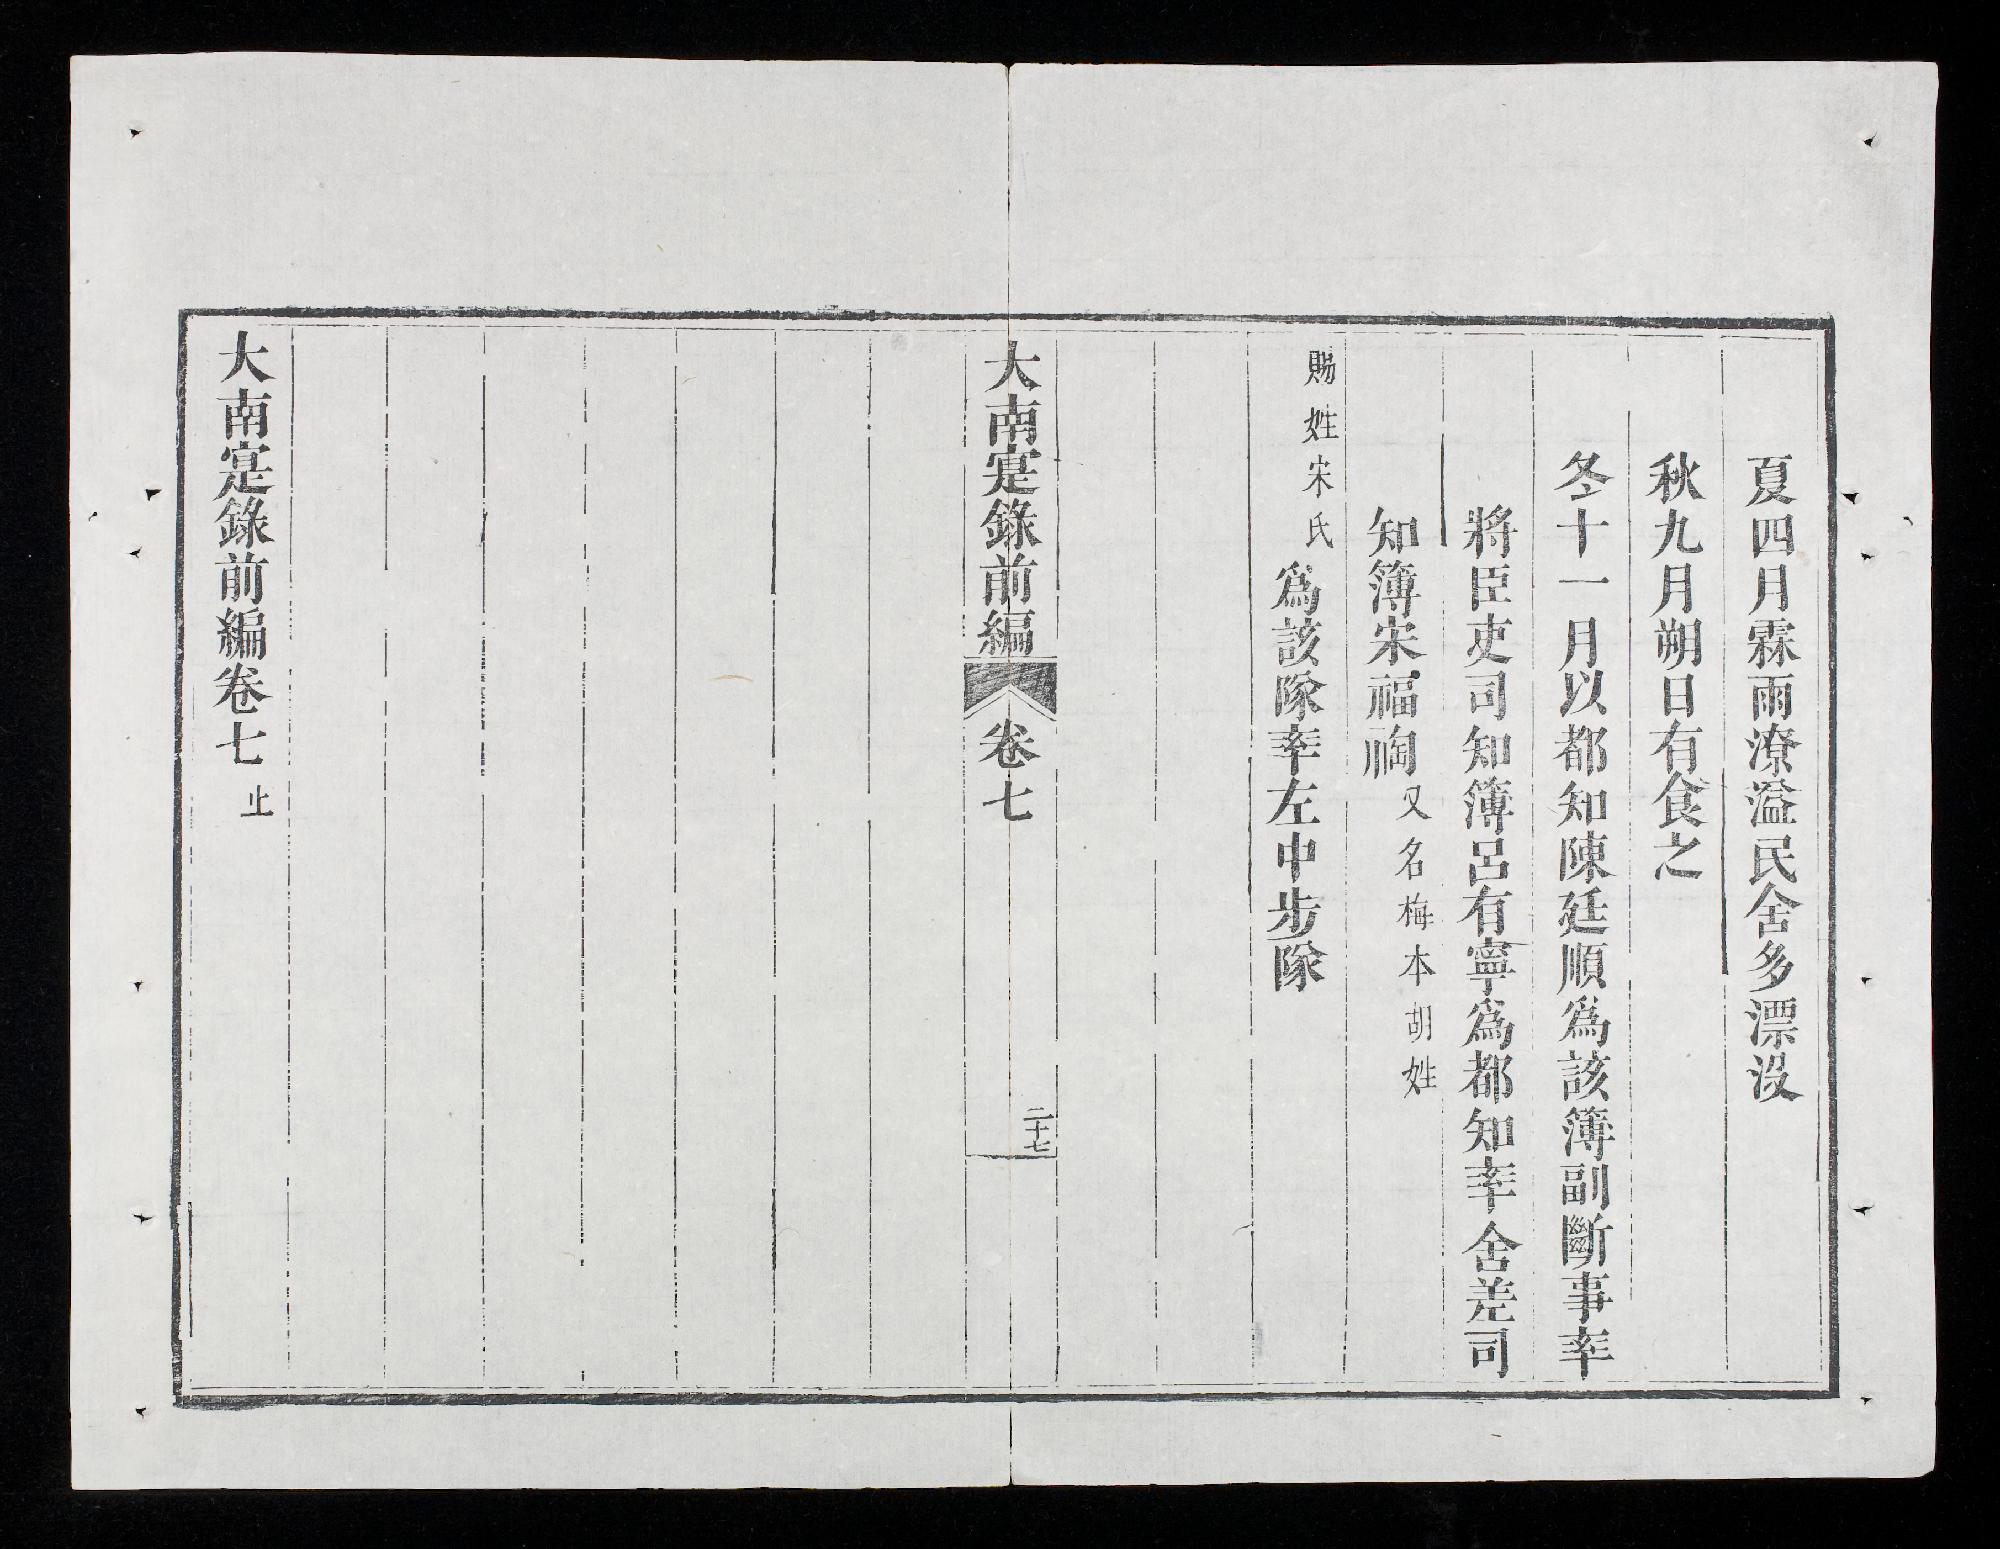 夏四月霖雨潦溢民舍多漂沒
秋九月朔日有食之
冬十一月以都知陳廷順爲該簿副斷事率
將臣吏司知簿呂有寧爲都知率舍差司
知簿宋福祹又名梅本胡姓
賜姓宋氏爲該隊率左中步隊
大南寔錄前編 卷七 二十七
大南寔錄前編卷七止